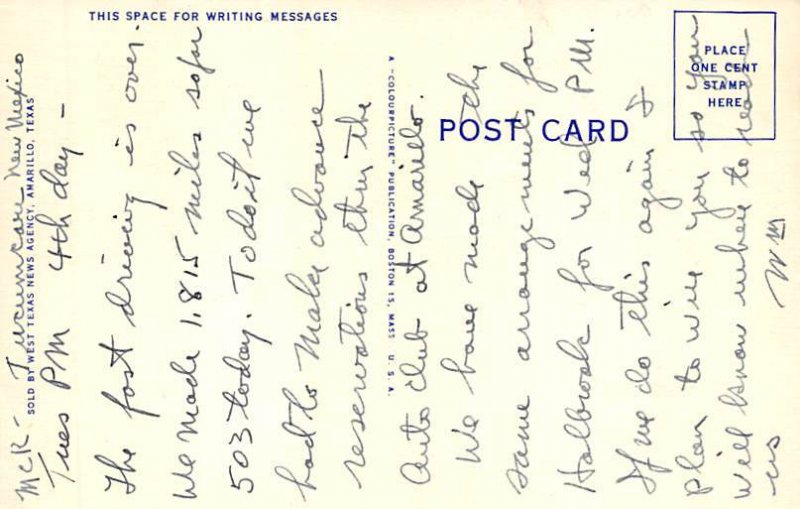 THIS SPACE FOR WRITING MESSAGES
PLACE
ONE CENT
STAMP
HERE
POST CARD
SOLD BY WEST TEXAS NEWS AGENCY, AMARILLO, TEXAS
A "COLOURPICTURE" PUBLICATION, BOSTON 15, MASS. U. S. A.
McK - Tucumcari New Mexico
Tues PM 4th day -
The fast driving is over.
We made 1,815 miles so far
503 today. To do it we
had to make advance
reservations thru the
Auto club at Amarillo.
We have made the
same arrangements for
Holbrook for Wed P.M.
If we do this again I
plan to wire you so you
will know where to reach
us WM